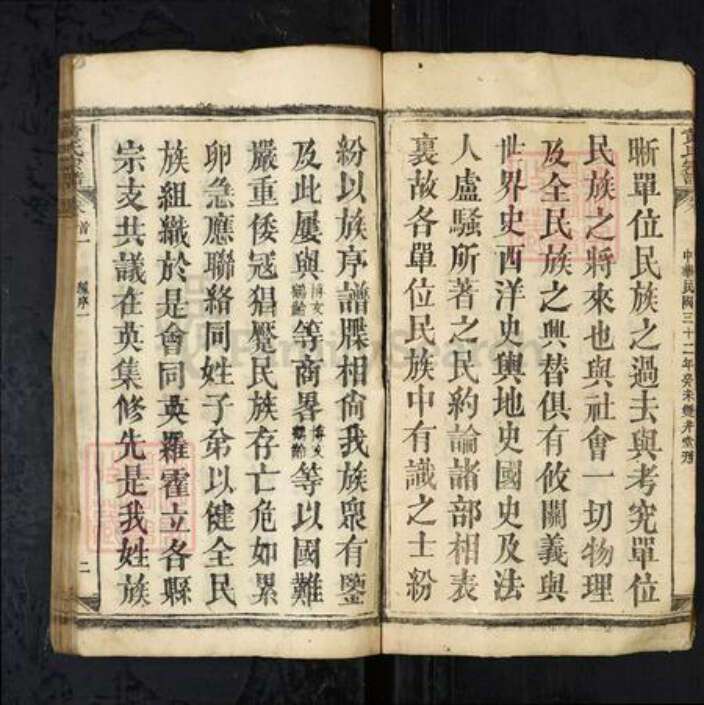 中華民國三十二年癸未
晰單位民族之過去與考究單位
民族之將來也與社會一切物理
及全民族之興替俱有攸關義與
世界史西洋史輿地史國史及法
人盧騷所著之民約論諸部相表
裏故各單位民族中有識之士紛
紛以族序譜牒相尙我族衆有鑒
及此屢與博文鶴齡等商畧博文鶴齡等以國難
嚴重倭寇猖蹷民族存亡危如累
卵急應聯絡同姓子弟以健全民
族組織於是會同英羅霍立各縣
宗支共議在英集修先是我姓族
氏宗譜 卷首一 序一 二